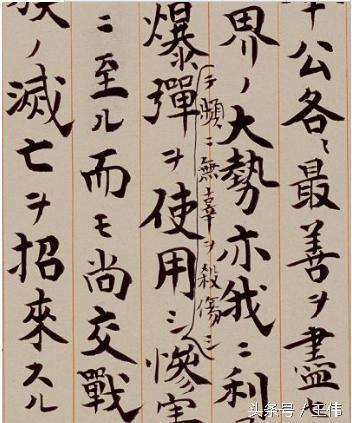 公各〻最善ヲ盡
界ノ大勢亦我ニ利
テ頻ニ無辜ヲ殺傷シ
爆彈ヲ使用シ慘害
ニ至ル而モ尚交戰
族ノ滅亡ヲ招來スル
头条号/王伟